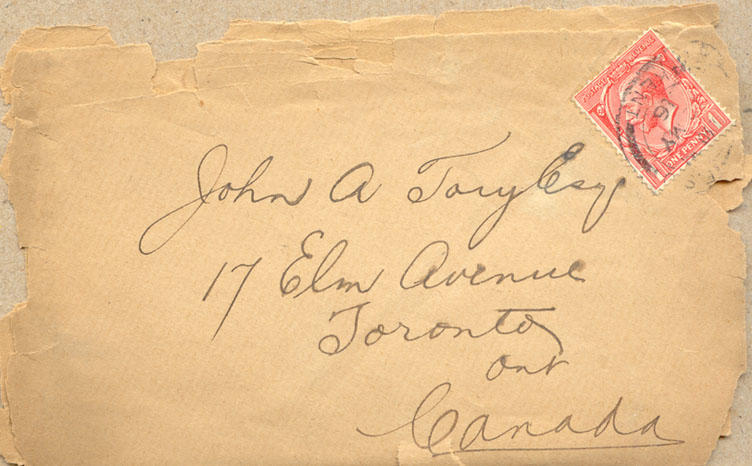 John A Tory Esq
17 Elm Avenue
Toronto
Ont
Canada
POSTAGE REVENUE
1 ONE PENNY 1